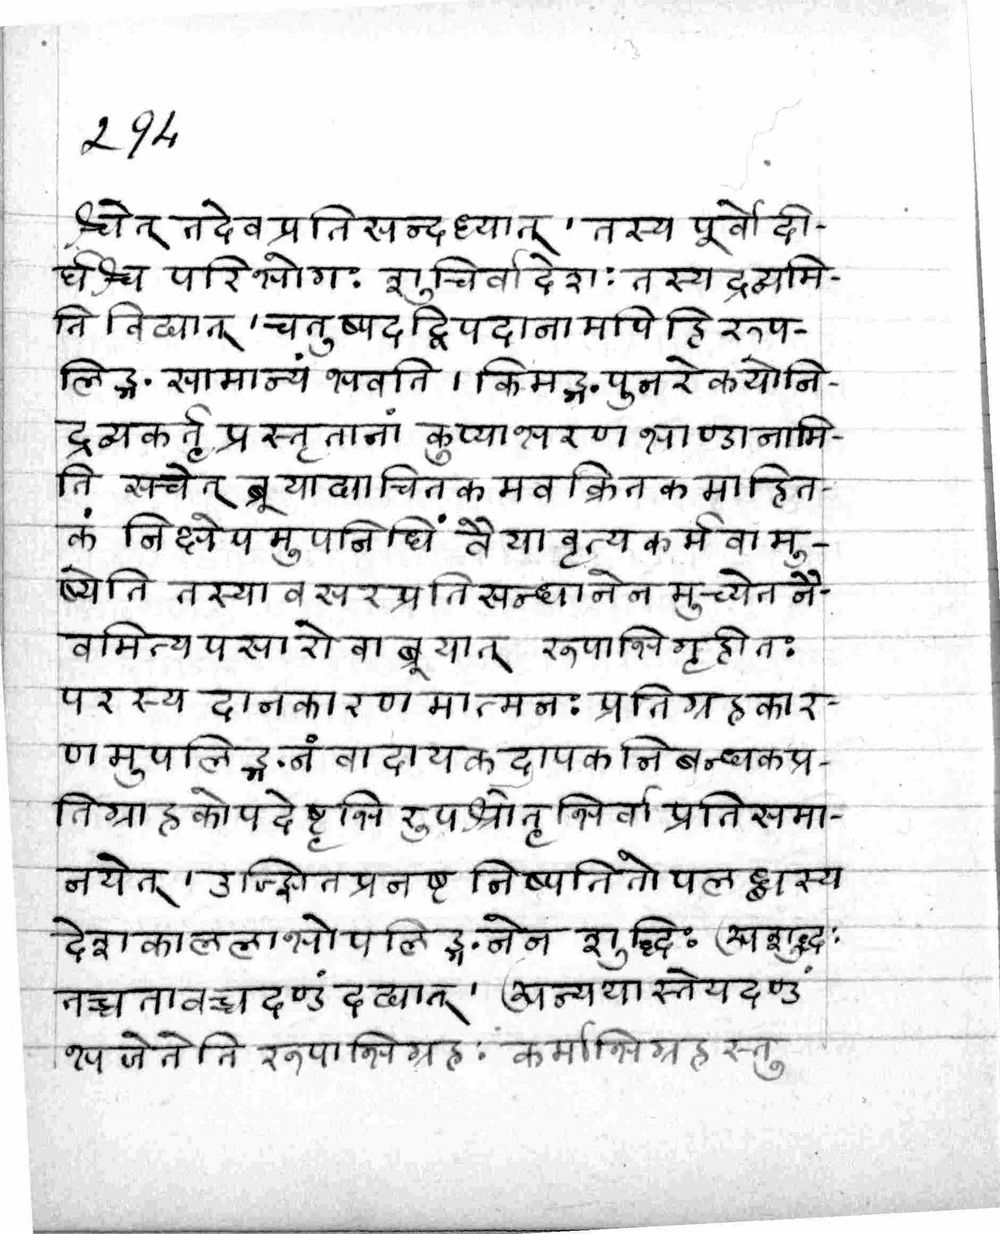 294
श्चेत् तदेव प्रतिसन्दध्यात् ' तस्य पूर्वो दी-
र्घश्च परिभोगः शुचिर्वा देशः तस्य द्रव्यमि-
ति विद्यात् ' चतुष्पदद्विपदानामपि हि रूप-
लिङ्ग सामान्यं भवति । किमङ्ग पुनरेकयोनि-
द्रव्यकर्तृ प्रस्तृतानां कुप्याभरण भाण्डानामि-
ति सचेत् ब्रूयाद्याचितकमवक्रितकमाहित-
कं निक्षेपमुपनिधिं वैयावृत्यकर्म वामु-
ष्येति तस्यावसरप्रतिसन्धानेन मुच्येत नै-
वमित्यपसारो वा ब्रूयात् रूपाभिगृहीतः
परस्य दानकारणमात्मनः प्रतिग्रहकार-
णमुपलिङ्गनं वा दायकदापकनिबन्धकप्र-
तिग्राहकोपदेष्टृभिरुपश्रोतृभिर्वा प्रतिसमा-
नयेत् ' उज्झितप्रनष्ट निष्पतितोपलब्धस्य
देशकाललाभोपलिङ्गनेन शुद्धिः अशुद्धः
तच्च तावच्च दण्डं दद्यात् ' अन्यथा स्तेयदण्डं
भजेतेति रूपाभिग्रहः कर्माभिग्रहस्तु